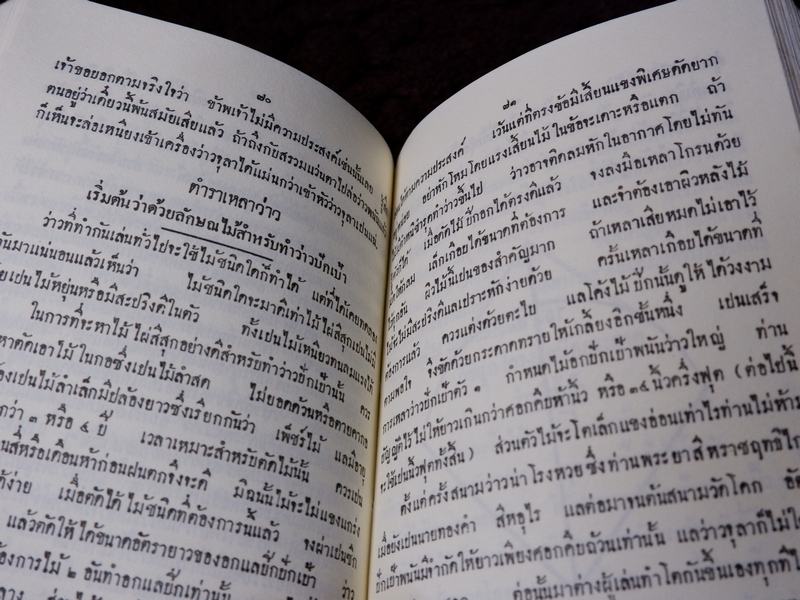 ๘๐
เจ้าขอยอกตามจริงใจว่า ข้าพเจ้าไม่มีความประสงค์เช่นนั้นเลย
ตนอยู่ว่าเดี๋ยวนี้พ้นสมัยเสียแล้ว ถ้าถึงกับสรวมแว่นตาไปล่อว่าว
ก็เห็นจะล่อเหนี่ยงเข้าเครื่องว่าวจุลาได้แม่นกว่าเข้าหัวว่าวจุลาเปนแน่
ตำราเหลาว่าว
เริ่มต้นว่าด้วยลักษณไม้สำหรับทำว่าวปักเป้า
ว่าวที่ทำกันเล่นทั่วไปจะใช้ไม้ชนิดใดก็ทำได้ แต่ที่ได้เคยทดลอง
กันมาแน่นอนแล้วเห็นว่า ไม้ชนิดใดจะมาดีเท่าไม้ไผ่สีสุกเปนไม่มี
เปนไม้หยุ่นหรือมีสะปริงดีในตัว ทั้งเปนไม้เหนียวทนลมแรงได้
ในการที่จะหาไม้ไผ่สีสุกอย่างดีสำหรับทำว่าวปักเป้านั้น ควร
หาตัดเอาไม้ในกอซึ่งเปนไม้ลำสด ไม่ยอดด้วนหรือตายคากอ
เปนไม้ลำเล็กมีปล้องยาวซึ่งเรียกกันว่า เพ็ชร์ไม้ แลมีอายุ
กว่า ๓ หรือ ๔ ปี เวลาเหมาะสำหรับตัดไม้นั้น ควรเปน
สี่หรือเดือนห้าก่อนฝนตกจึงจะดี มิฉนั้นไม้จะไม่แข็งแกร่ง
ง่าย เมื่อตัดได้ไม้ชนิดที่ต้องการนี้แล้ว จงผ่าเปนซีก
แล้วตัดให้ได้ขนาดอัตรายาวของอกแลปีกปักเป้า ว่าว
ต้องการไม้ ๒ อันทำอกแลปีกเท่านั้น
๘๑
ตามความประสงค์ เว้นแต่ที่ตรงข้อมีเสี้ยนแขงพิเศษดัดยาก
อย่าหักโหมโดยแรงเสี้ยนไม้ในข้อจะเดาะหรือแตก ถ้า
ชำรุดทำว่าวขึ้นไป ว่าวอาจติดลมหักในอากาศโดยไม่ทัน
เมื่อดัดไม้ปีกอกได้ตรงดีแล้ว จงลงมือเหลาโกรนด้วย
เล็กเกือบได้ขนาดที่ต้องการ และจำต้องเอาผิวหลังไม้
ผิวไม้นี้เปนของสำคัญมาก ถ้าเหลาเสียหมดไม่เอาไว้
ไม่มีสะปริงดีแลเปราะหักง่ายด้วย ครั้นเหลาเกือบได้ขนาดที่
ต้องการแล้ว ควรแต่งด้วยตะไบ แลโค้งไม้ปีกนั้นดูให้ได้วงงาม
ตามพอใจ จึงขัดด้วยกระดาดทรายให้เกลี้ยงอีกชั้นหนึ่ง เปนเสร็จ
การเหลาว่าวปักเป้าตัว ๑ กำหนดไม้อกปักเป้าพนันว่าวใหญ่ ท่าน
บัญญัติไว้ไม่ให้ยาวเกินกว่าศอกคืบห้านิ้ว หรือ ๓๔ นิ้วครึ่งฟุต (ต่อไปนี้
จะใช้เปนนิ้วฟุตทั้งสิ้น) ส่วนตัวไม้จะโตเล็กแขงอ่อนเท่าไรท่านไม่ห้าม
ตั้งแต่ครั้งสนามว่าวน่าโรงหวย ซึ่งท่านพระยาสิหราชฤทธิไกร
เมื่อยังเปนนายทองคำ สิหอุไร แลต่อมาจนต้นสนามวัดโคก
ปักเป้าพนันมีจำกัดให้ยาวเพียงศอกคืบถ้วนเท่านั้น แลว่าวจุลาก็ไม่
ต่อนั้นมาต่างผู้เล่นทำโตกันขึ้นเองทุกที